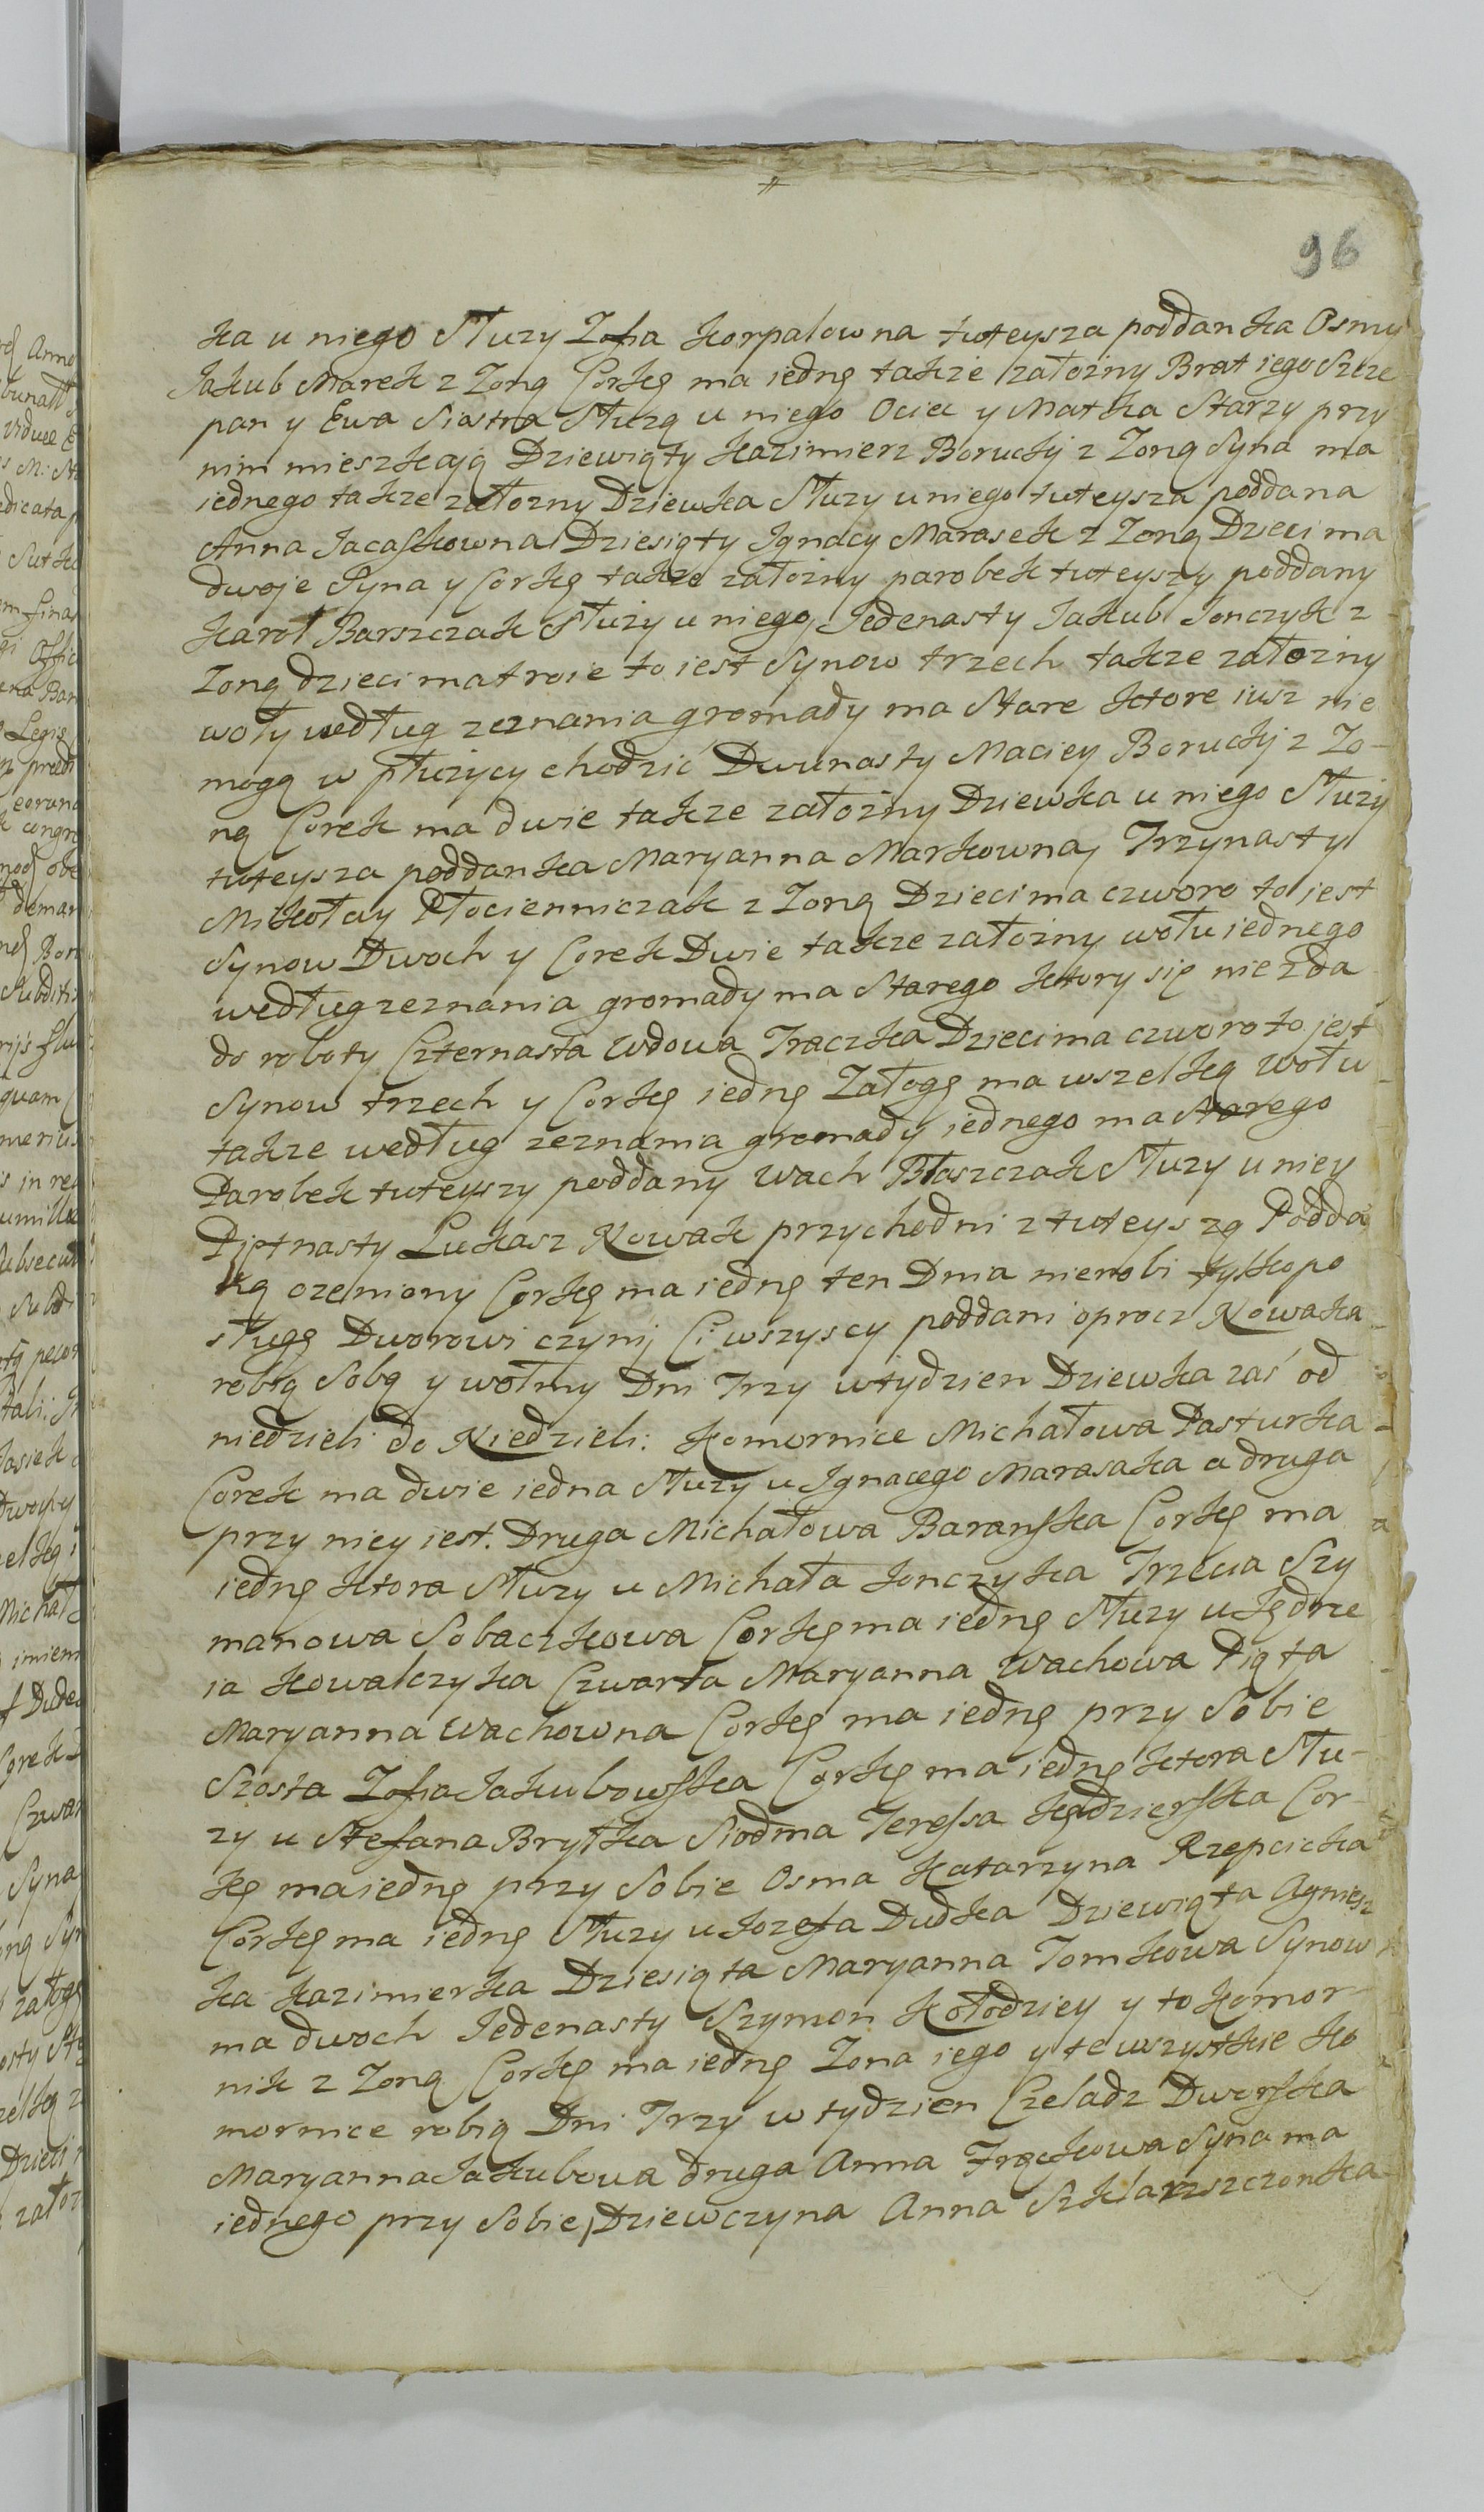 96
ka u niego Słuzy Zofia Korpalowna tuteysza poddanka Osmy
Jakub Marek z Zoną Corkę ma iednę także załozny Brat iego Szcze
pan y Ewa Siostra Słuzą u niego Ociec y Matka Starzy przy
nim mieszkają Dziewiąty Kazimierz Borucki z Zoną Syna ma
iednego takze załozny Dziewka Słuzy u niego tuteysza poddana
Anna Jacaskowna Dziesiąty Jgnacy Marasek z Zoną Dzieci ma
dwoje Syna y Corkę takze załozny parobek tuteyszy poddany
Karol Barszczak Słuzy u niego, Jedenasty Jakub Jonczyk z
Zoną dzieci ma troie to iest Synow trzech takze załozny
woły według zeznania gromady ma Stare ktore iusz nie
mogą w płuzycy chodzić Dwunasty Maciey Borucki z Zo-
ną Corek ma dwie takze załozny Dziewka u niego Słuzy
tuteysza poddanka Maryanna Markowna, Trzynasty
Mikołay Płocienniczak z Zoną Dzieci ma czworo to jest
Synow Dwoch y Corek Dwie takze załozny wołu iednego
według zeznania gromady ma Starego ktory się nie zda
do roboty Czternasta Wdowa Traczka Dzieci ma czworo to jest
Synow trzech y Corkę iednę Załogę ma wszelką wołu
takze według zeznania gromady iednego ma Starego
Parobek tuteyszy poddany Wach Błaszczak Słuzy u niey
Piętnasty Łukasz Nowak przychodni z tuteyszą Podda
ką ozeniony Corkę ma iednę ten Dnia nierobi tylko po
sługę Dworowi czyni Ci wszyscy poddani oprocz Nowaka
robią Sobą y wołmy Dni Trzy w tydzien Dziewka zaś od
niedzieli do Niedzieli: Komornice Michałowa Pasturka
Corek ma dwie iedna Słuzy u Jgnacego Marasaka a druga
przy niey iest. Druga Michałowa Baranska Corkę ma
iednę ktora Słuzy u Michała Jonczyka Trzecia Szy
manowa Sobaczkowa Corkę ma iednę Słuzy u Jędrze
ia Kowalczyka Czwarta Maryanna Wachowa Piąta
Maryanna Wachowna Corkę ma iednę przy Sobie
Szosta Zofia Jakubowska Corkę ma iednę ktora Słu-
zy u Stefana Bryłka Siodma Teressa Kędzierska Cor-
kę ma iednę przy Sobie Osma Katarzyna Rzepcicka
Corkę ma iednę Słuzy u Jozefa Dudka Dziewiąta Agniesz
ka Kazimierka Dziesiąta Maryanna Tomkowa Synow
ma dwoch Jedenasty Szymon Kołodziey y to Komor-
nik z Zoną Corkę ma iednę Zona iego y te wszystkie Ko
mornice robią Dni Trzy w tydzien Czeladz Dworska
Maryanna Jakubowa druga Anna Frąckowa Syna ma
iednego przy Sobie, Dziewczyna Anna Szklarzszczonka